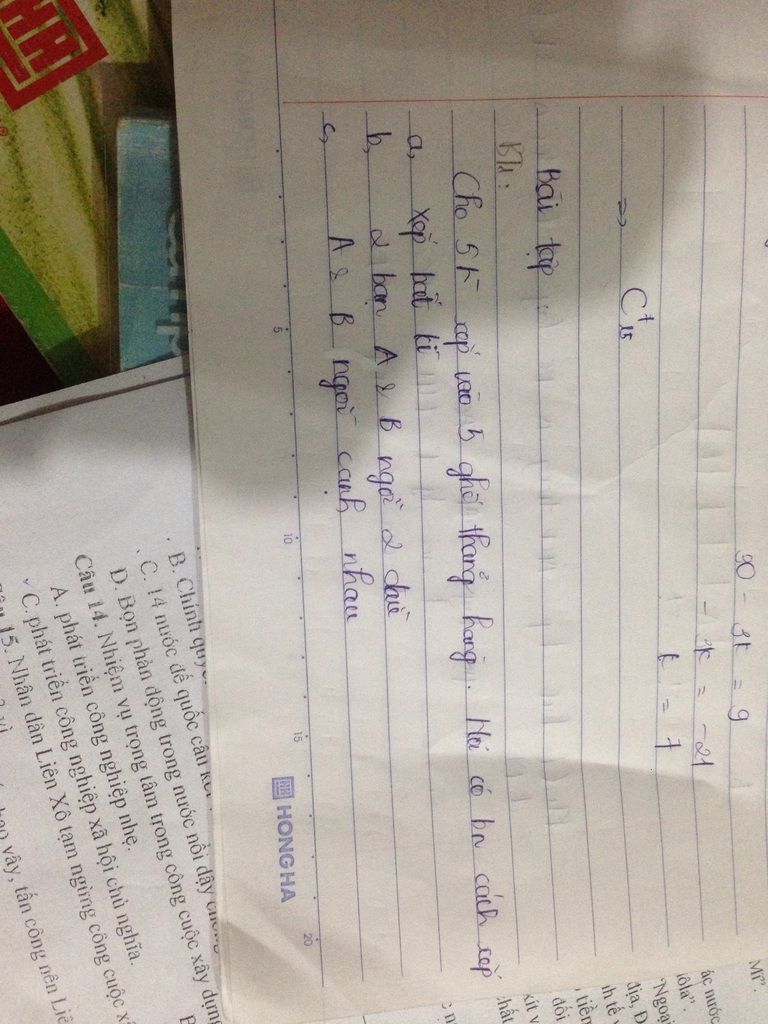 30 - 3k = 9
- 3k = -21
k = 7
=> C⁷₁₅
Bài tập :
B1 :
Cho 5 h xếp vào 5 ghế thẳng hàng. Hỏi có bn cách xếp
a, xếp bất kì
b, 2 bạn A & B ngồi 2 đầu
c, A & B ngồi cạnh nhau
5 10 15 20
HONG HA
B. Chính quyề
C. 14 nước đế quốc câu kết
D. Bọn phản động trong nước nổi dậy chống
Câu 14. Nhiệm vụ trọng tâm trong công cuộc xây dựng
A. phát triển công nghiệp nhẹ.
C. phát triển công nghiệp xã hội chủ nghĩa.
15. Nhân dân Liên Xô tạm ngừng công cuộc x
bao vây, tấn công nên Liê